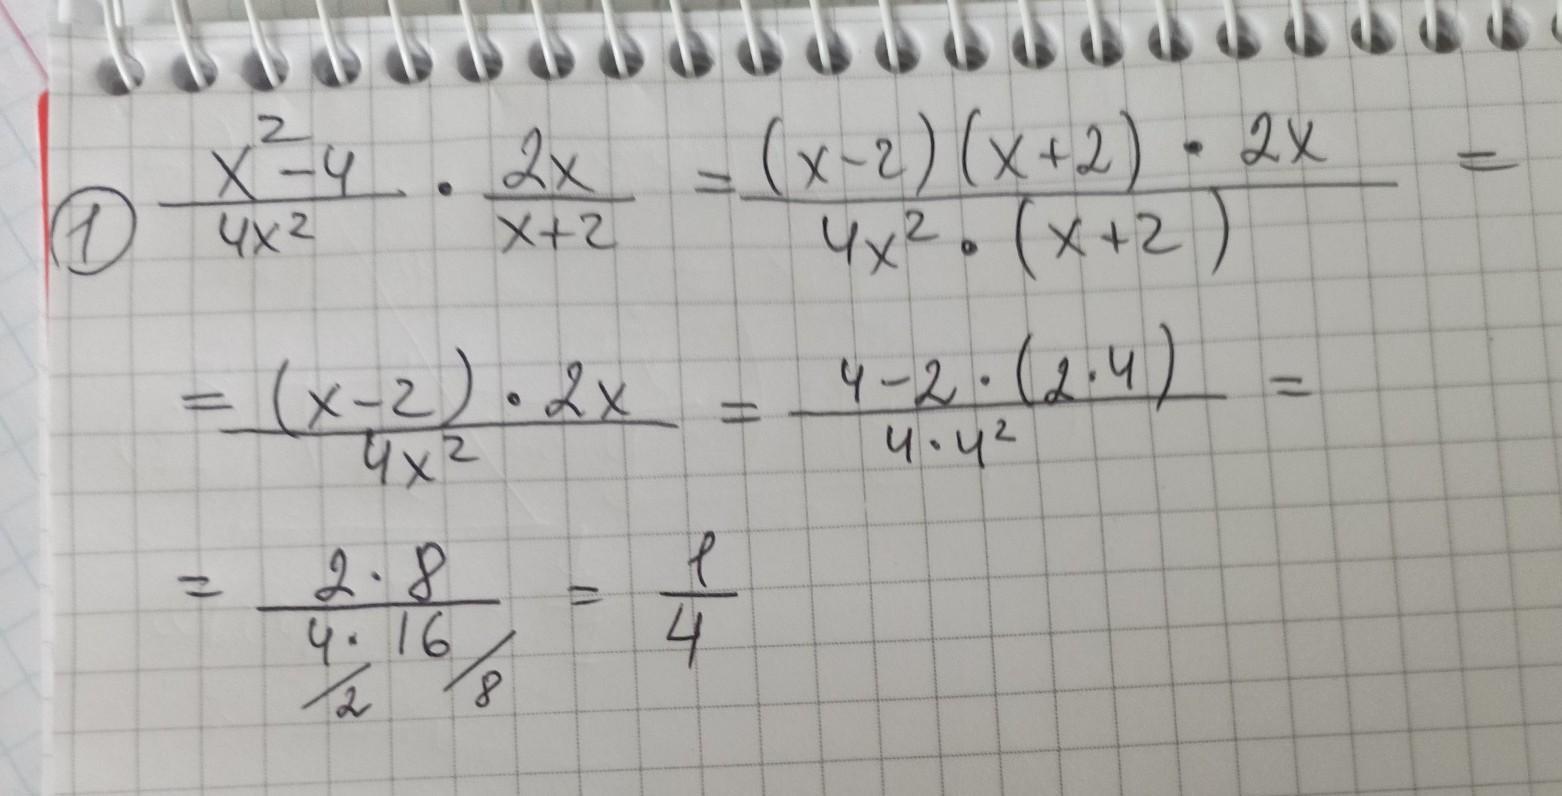 ① (x²-4)/(4x²) · (2x)/(x+2) = ((x-2)(x+2) · 2x)/(4x² · (x+2)) =
= ((x-2) · 2x)/(4x²) = (4-2·(2·4))/(4·4²) =
= (2·8)/(4·16) = 1/4
/2 /8